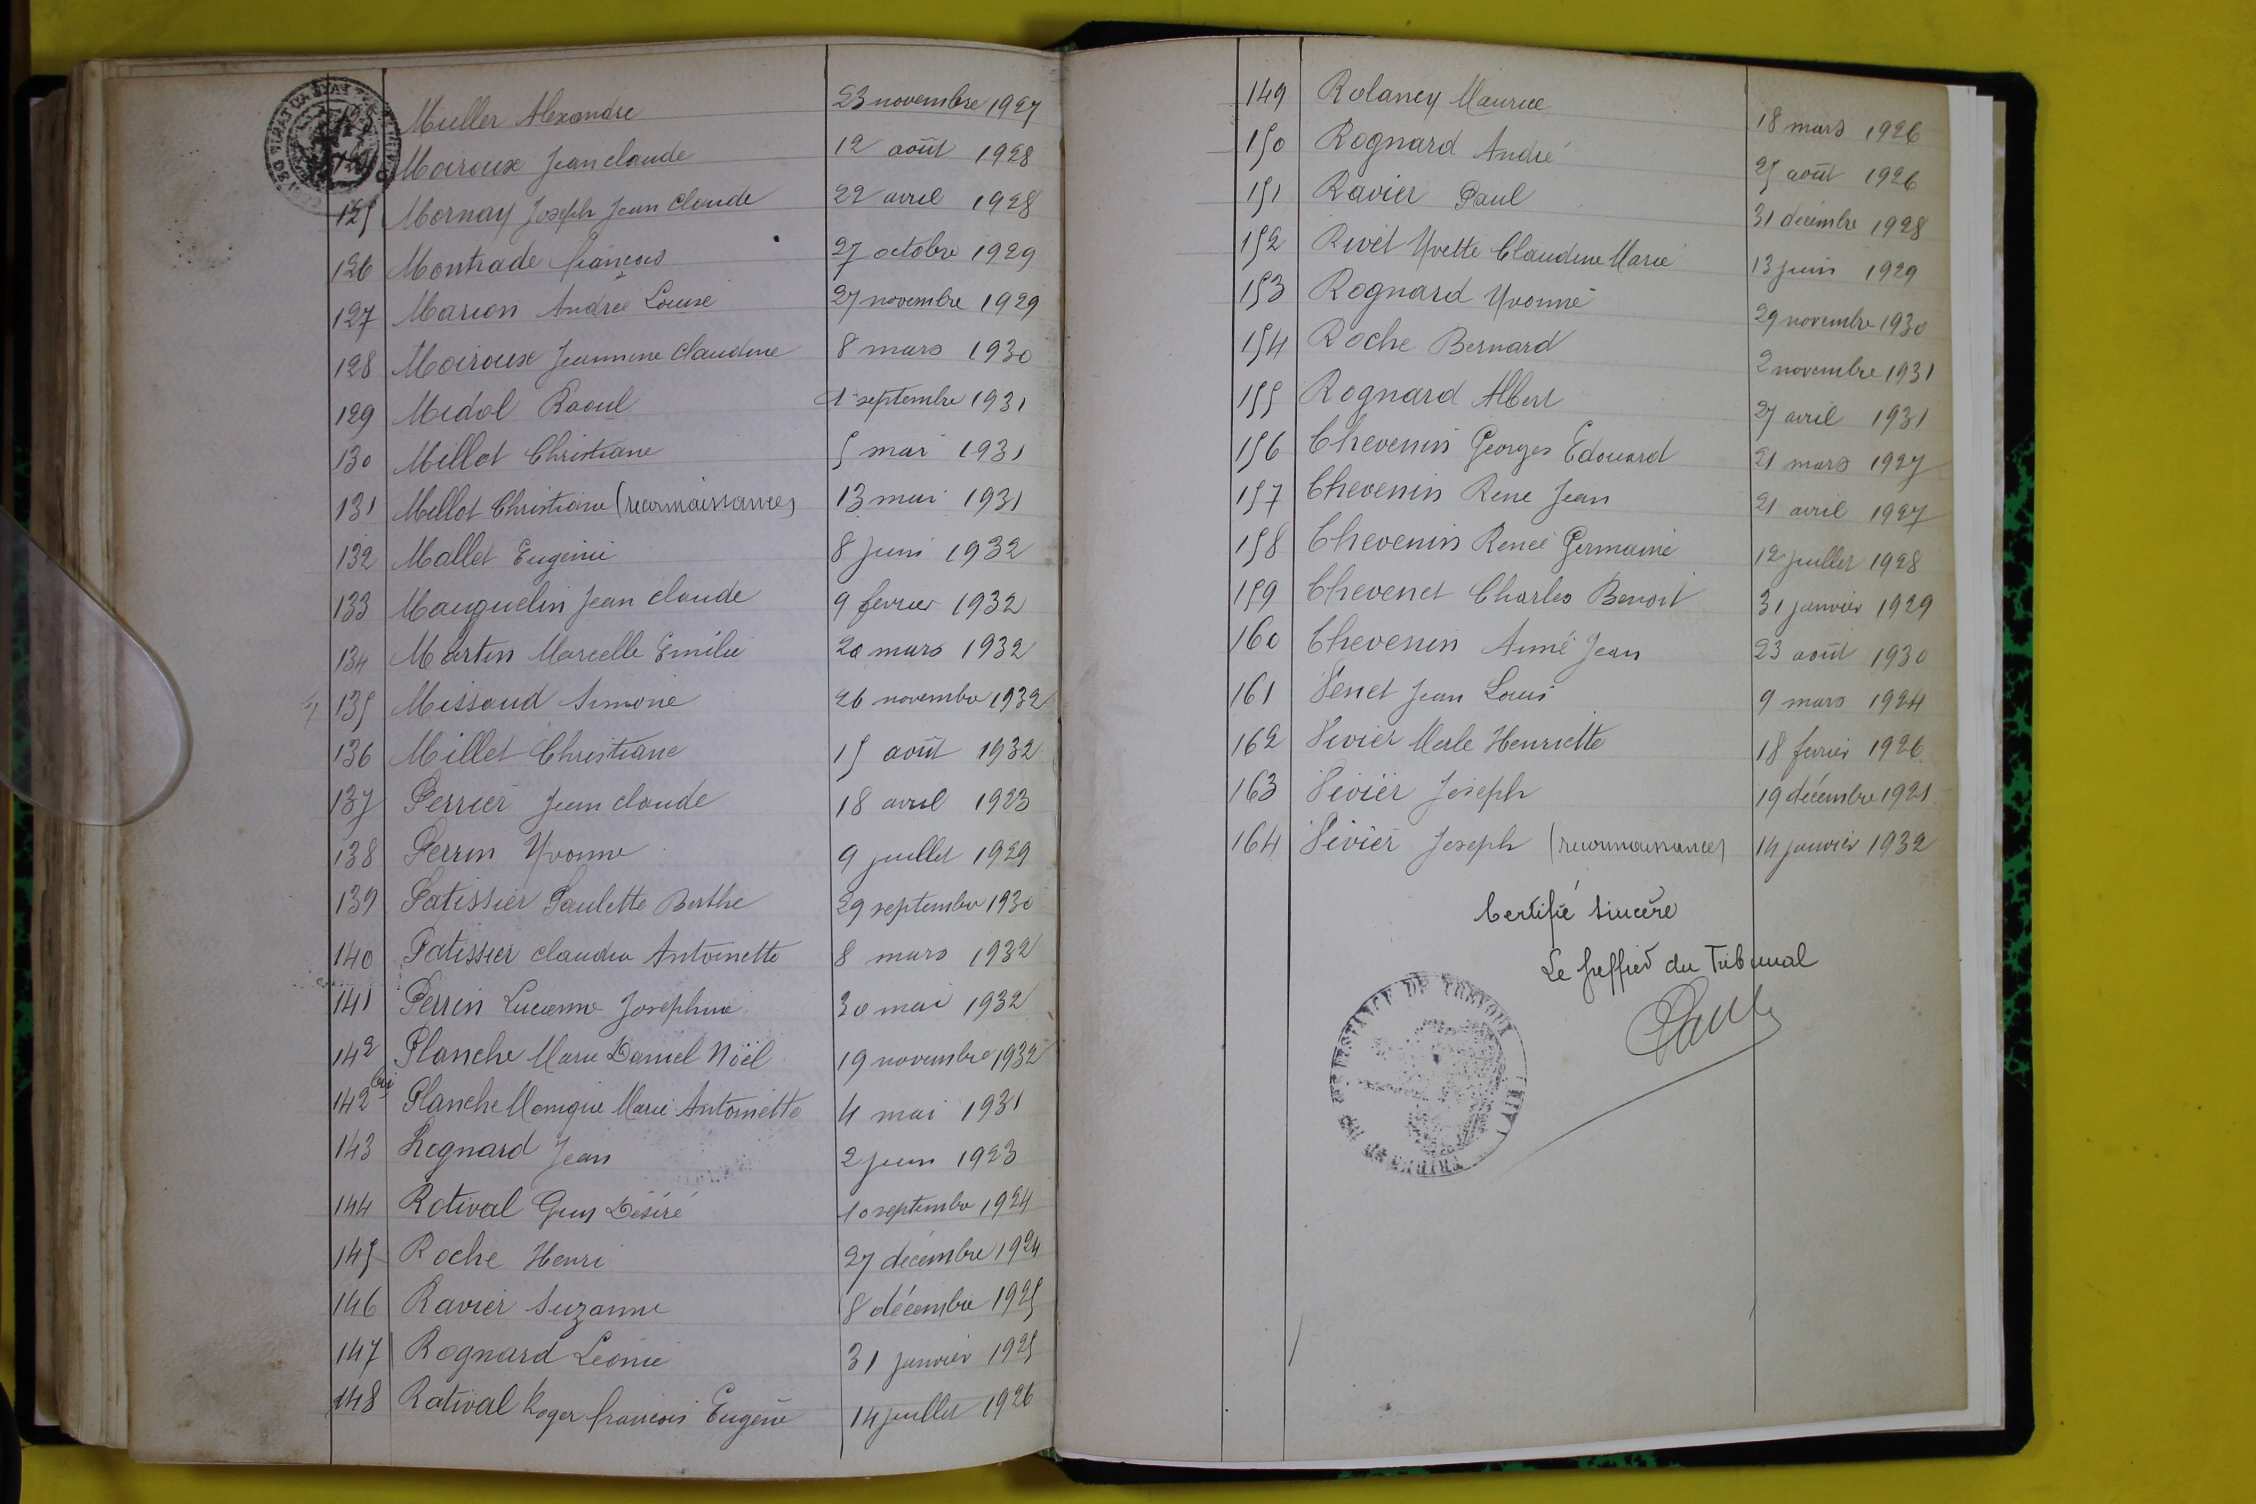 Muller Alexandre 23 novembre 1927
Moiroux Jean claude 12 août 1928
125 Mornay Joseph Jean Claude 22 avril 1928
126 Montrade françois 27 octobre 1929
127 Marion Andrée Louise 27 novembre 1929
128 Moiroux Jeannine Claudine 8 mars 1930
129 Midol Raoul 1 septembre 1931
130 Millot Christiane 5 mai 1931
131 Millot Christiane (reconnaissance) 13 mai 1931
132 Mallet Eugénie 8 juin 1932
133 Mauguelin Jean claude 9 fevrier 1932
134 Martin Marcelle Emilie 20 mars 1932
135 Missoud Simone 26 novembre 1932
136 Millet Christiane 15 août 1932
137 Perrier Jean claude 18 avril 1923
138 Perrin Yvonne 9 juillet 1929
139 Patissier Paulette Berthe 29 septembre 1930
140 Patissier claudia Antoinette 8 mars 1932
141 Perrin Lucienne Josephine 30 mai 1932
142 Planche Marie Daniel Noël 19 novembre 1932
142 bis Planche Monique Marie Antoinette 4 mai 1931
143 Regnard Jean 2 juin 1923
144 Rotival Guy Désiré 10 septembre 1924
145 Roche Henri 27 décembre 1924
146 Ravier Suzanne 8 décembre 1925
147 Rognard Léonie 31 janvier 1925
148 Rotival Roger françois Eugène 14 juillet 1926
149 Rolancy Maurice 18 mars 1926
150 Rognard André 25 août 1926
151 Ravier Paul 31 décembre 1928
152 Rivet Yvette Claudine Marie 13 juin 1929
153 Rognard Yvonne 29 novembre 1930
154 Roche Bernard 2 novembre 1931
155 Rognard Albert 27 avril 1931
156 Thevenin Georges Edouard 21 mars 1927
157 Thevenin Rene Jean 21 avril 1927
158 Thevenin Renée Germaine 12 juillet 1928
159 Thevenet Charles Benoit 31 janvier 1929
160 Thevenin Aimé Jean 23 août 1930
161 Venet Jean Louis 9 mars 1924
162 Vivier Merle Henriette 18 fevrier 1926
163 Vivier Joseph 19 décembre 1921
164 Vivier Joseph (reconnaissance) 14 janvier 1932
Certifié sincère
Le Greffier du Tribunal
TRIBUNAL CIVIL DE 1ère INSTANCE DE TREVOUX